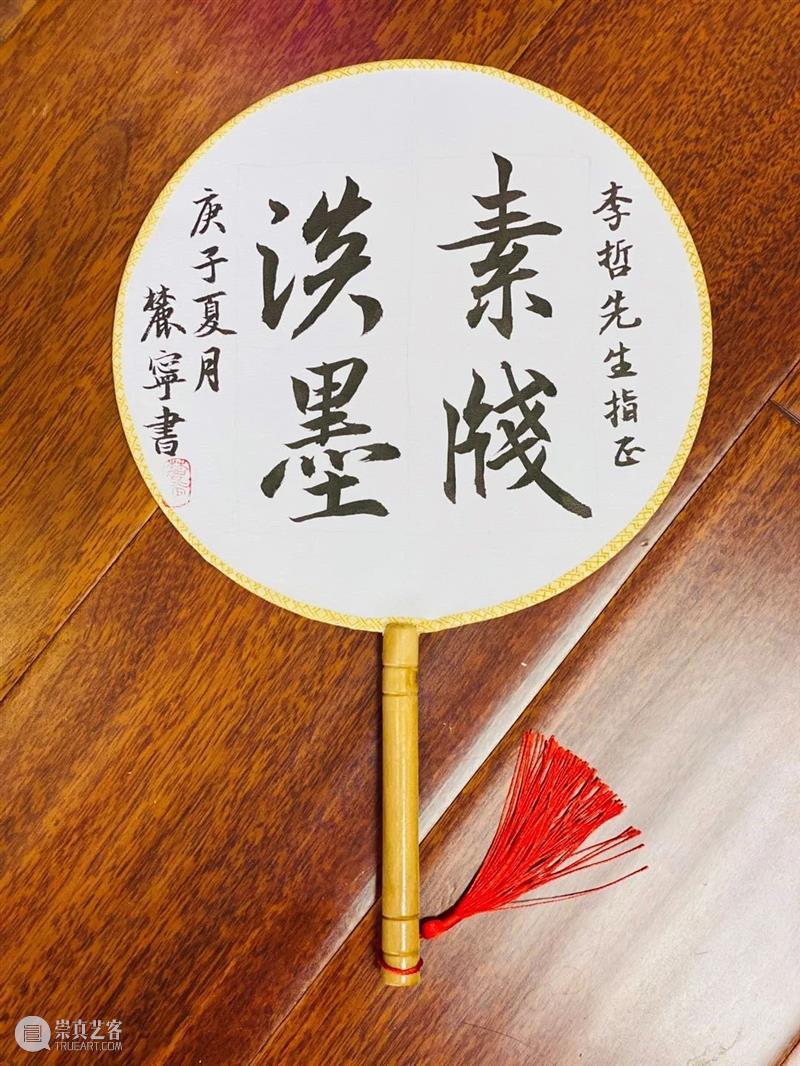 李哲先生指正
素牋
淡墨
庚子夏月
麓寧書
崇真艺客
TRUEART.COM